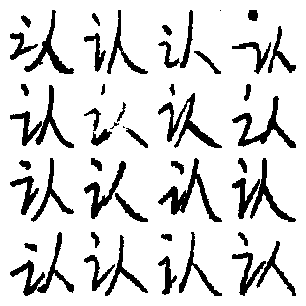 认认认认
认认认认
认认认认
认认认认